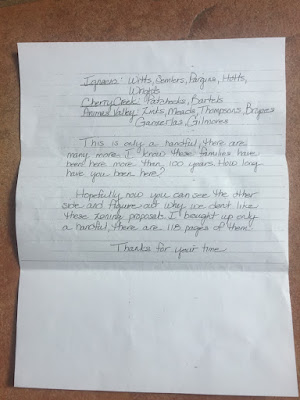 Witts, Semlers, Fargus, Hotts,
Wrights
Cherry Creek: Patshecks, Bartels
Animas Valley: Zinks, Meads, Thompsons, Bryces
Gilmores
This is only a handful, there are
many more. I know these families have
been here more than 100 years. How long
have you been here?
Hopefully now you can see the other
side and figure out why we don't like
these zoning proposals. I bought up only
a handful, there are 118 pages of them.
Thanks for your time